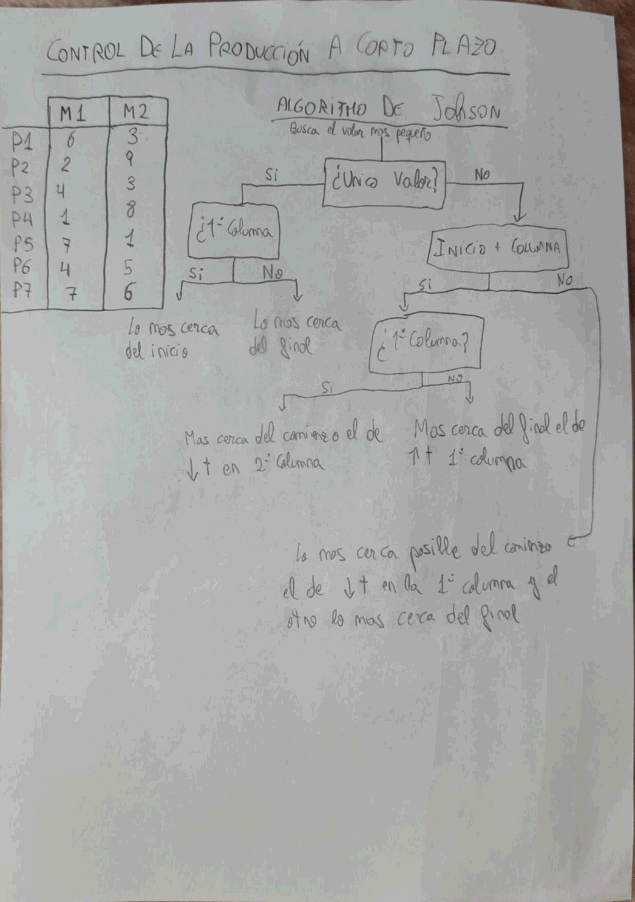 CONTROL DE LA PRODUCCIÓN A CORTO PLAZO
M1 M2
P1 6 3
P2 2 9
P3 4 3
P4 1 8
P5 7 1
P6 4 5
P7 7 6
ALGORITMO DE JOHSON
Busca el valor mas pequeño
¿Unico Valor?
Si
No
¿1ª Columna
Si
No
Lo mas cerca
del inicio
Lo mas cerca
del final
INICIO + COLUMNA
Si
No
¿1ª Columna?
Si
NO
Mas cerca del comienzo el de
↓ t en 2ª Columna
Mas cerca del final el de
↑ t 1ª columna
Lo mas cerca posible del comienzo
el de ↓ t en la 1ª columna y el
otro lo mas cerca del final